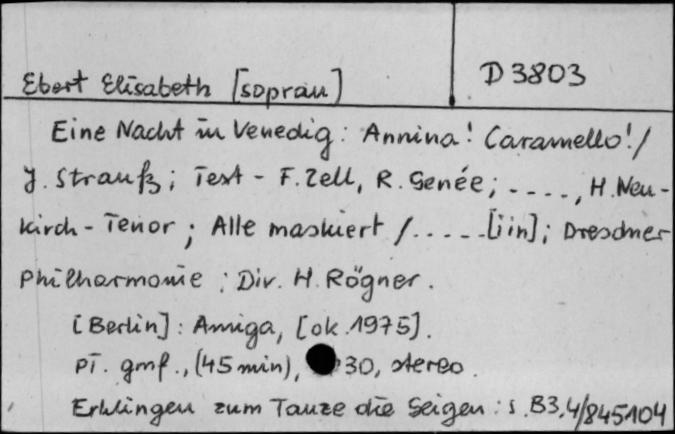 Ebert Elisabeth [sopran]
D 3803
Eine Nacht in Venedig: Annina! Caramello! /
J. Strauß; Text - F. Zell, R. Genée; - - - -, H. Neu-
kirch - Tenor; Alle maskiert / - - - - - [i in]; Dresdner
Philharmonie; Dir. H. Rögner.
[Berlin]: Amiga, [ok. 1975].
pł. gmf., (45 min), 30, stereo.
Erklingen zum Tanze die Geigen: s. B3,4/845104